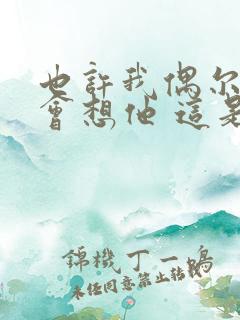 也許我偶尔
會想他 這是
錦機丁一鴫
未任同意禁止转载